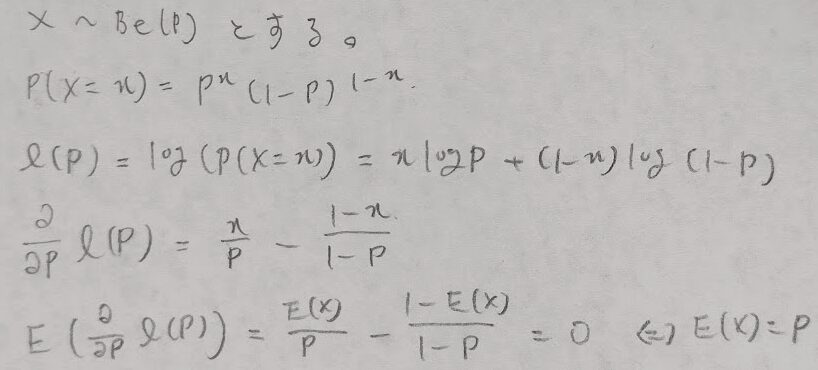 X ~ Be(p) とする。
P(X=x) = p^x (1-p)^{1-x}.
l(p) = log(P(X=x)) = x log p + (1-x) log (1-p)
∂/∂p l(p) = x/p - (1-x)/(1-p)
E(∂/∂p l(p)) = E(X)/p - (1-E(X))/(1-p) = 0 ⇔ E(X) = p